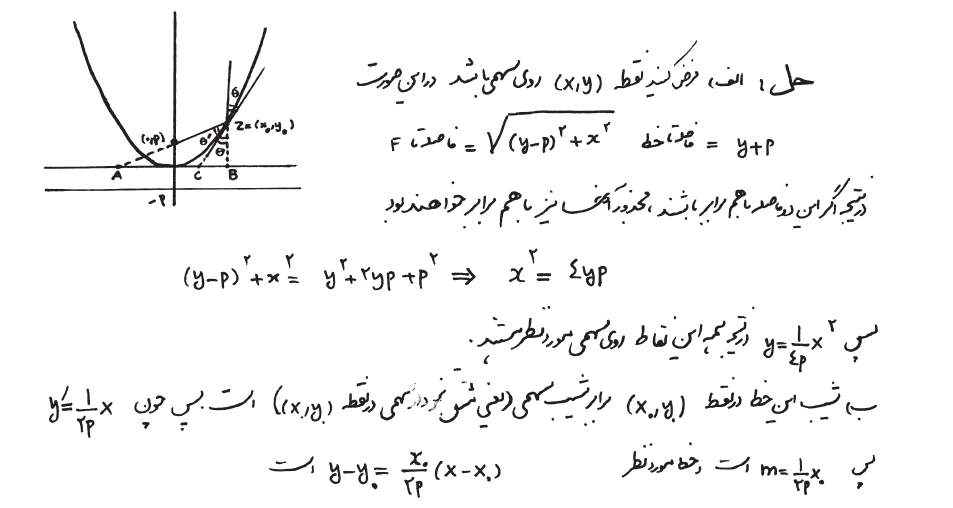 حل: الف، فرض کنید نقطه (x,y) روی سهمی باشد در این صورت
F فاصله تا = √((y-p)²+x²) فاصله تا خط = y+p
در نتیجه اگر این دو فاصله با هم برابر باشند، مجذور آنها نیز با هم برابر خواهند بود
(y-p)²+x² = y²+۲yp+p² ⇒ x² = ٤yp
پس y=۱/٤p x² در نتیجه همه این نقاط روی سهمی مورد نظر هستند.
ب، شیب این خط در نقطه (x₀,y₀) برابر شیب سهمی (یعنی مشتق نمودار سهمی در نقطه (x₀,y₀)) است. پس چون y′=۱/۲p x
پس m=۱/۲p x₀ است و خط مورد نظر y-y₀= x₀/۲p (x-x₀) است
(۰,p)
θ
Z=(x₀,y₀)
θ
θ
A
C
B
-P